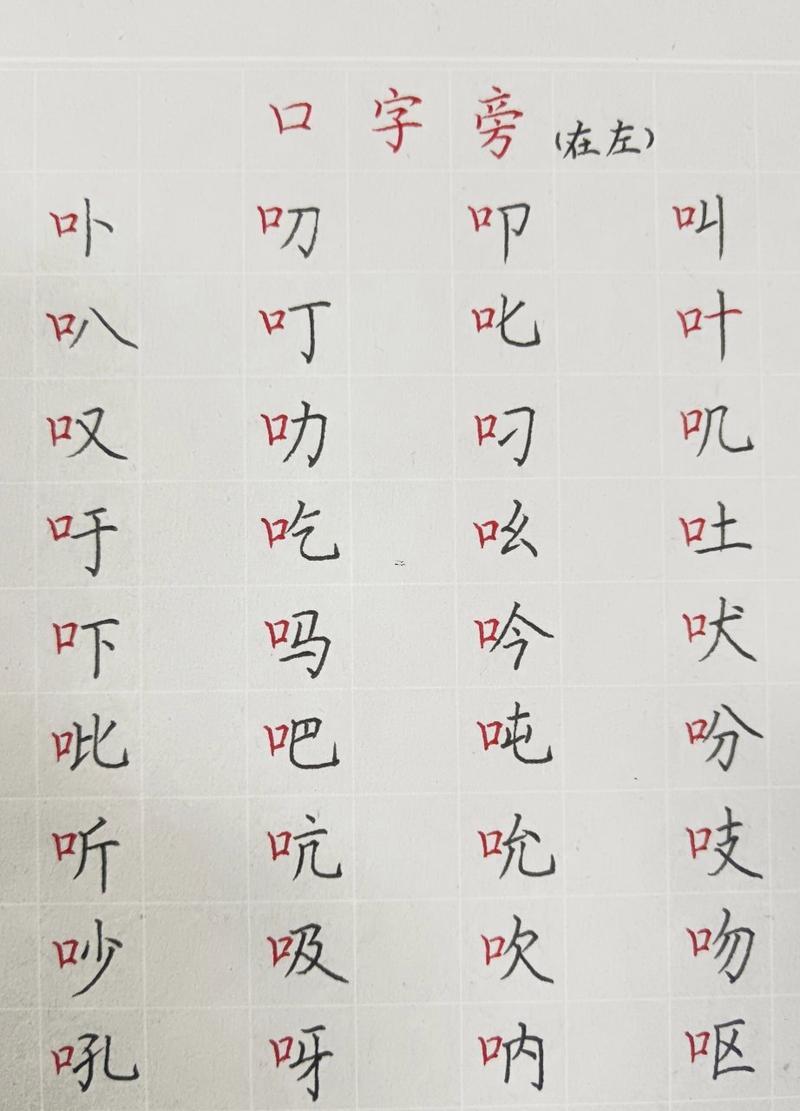 口字旁(在左)
卟 叨 叩 叫
叭 叮 叱 叶
叹 叻 叼 叽
吁 吃 吆 吐
吓 吗 吟 吠
吡 吧 吨 吩
听 吭 吮 吱
吵 吸 吹 吻
吼 呀 呐 呕